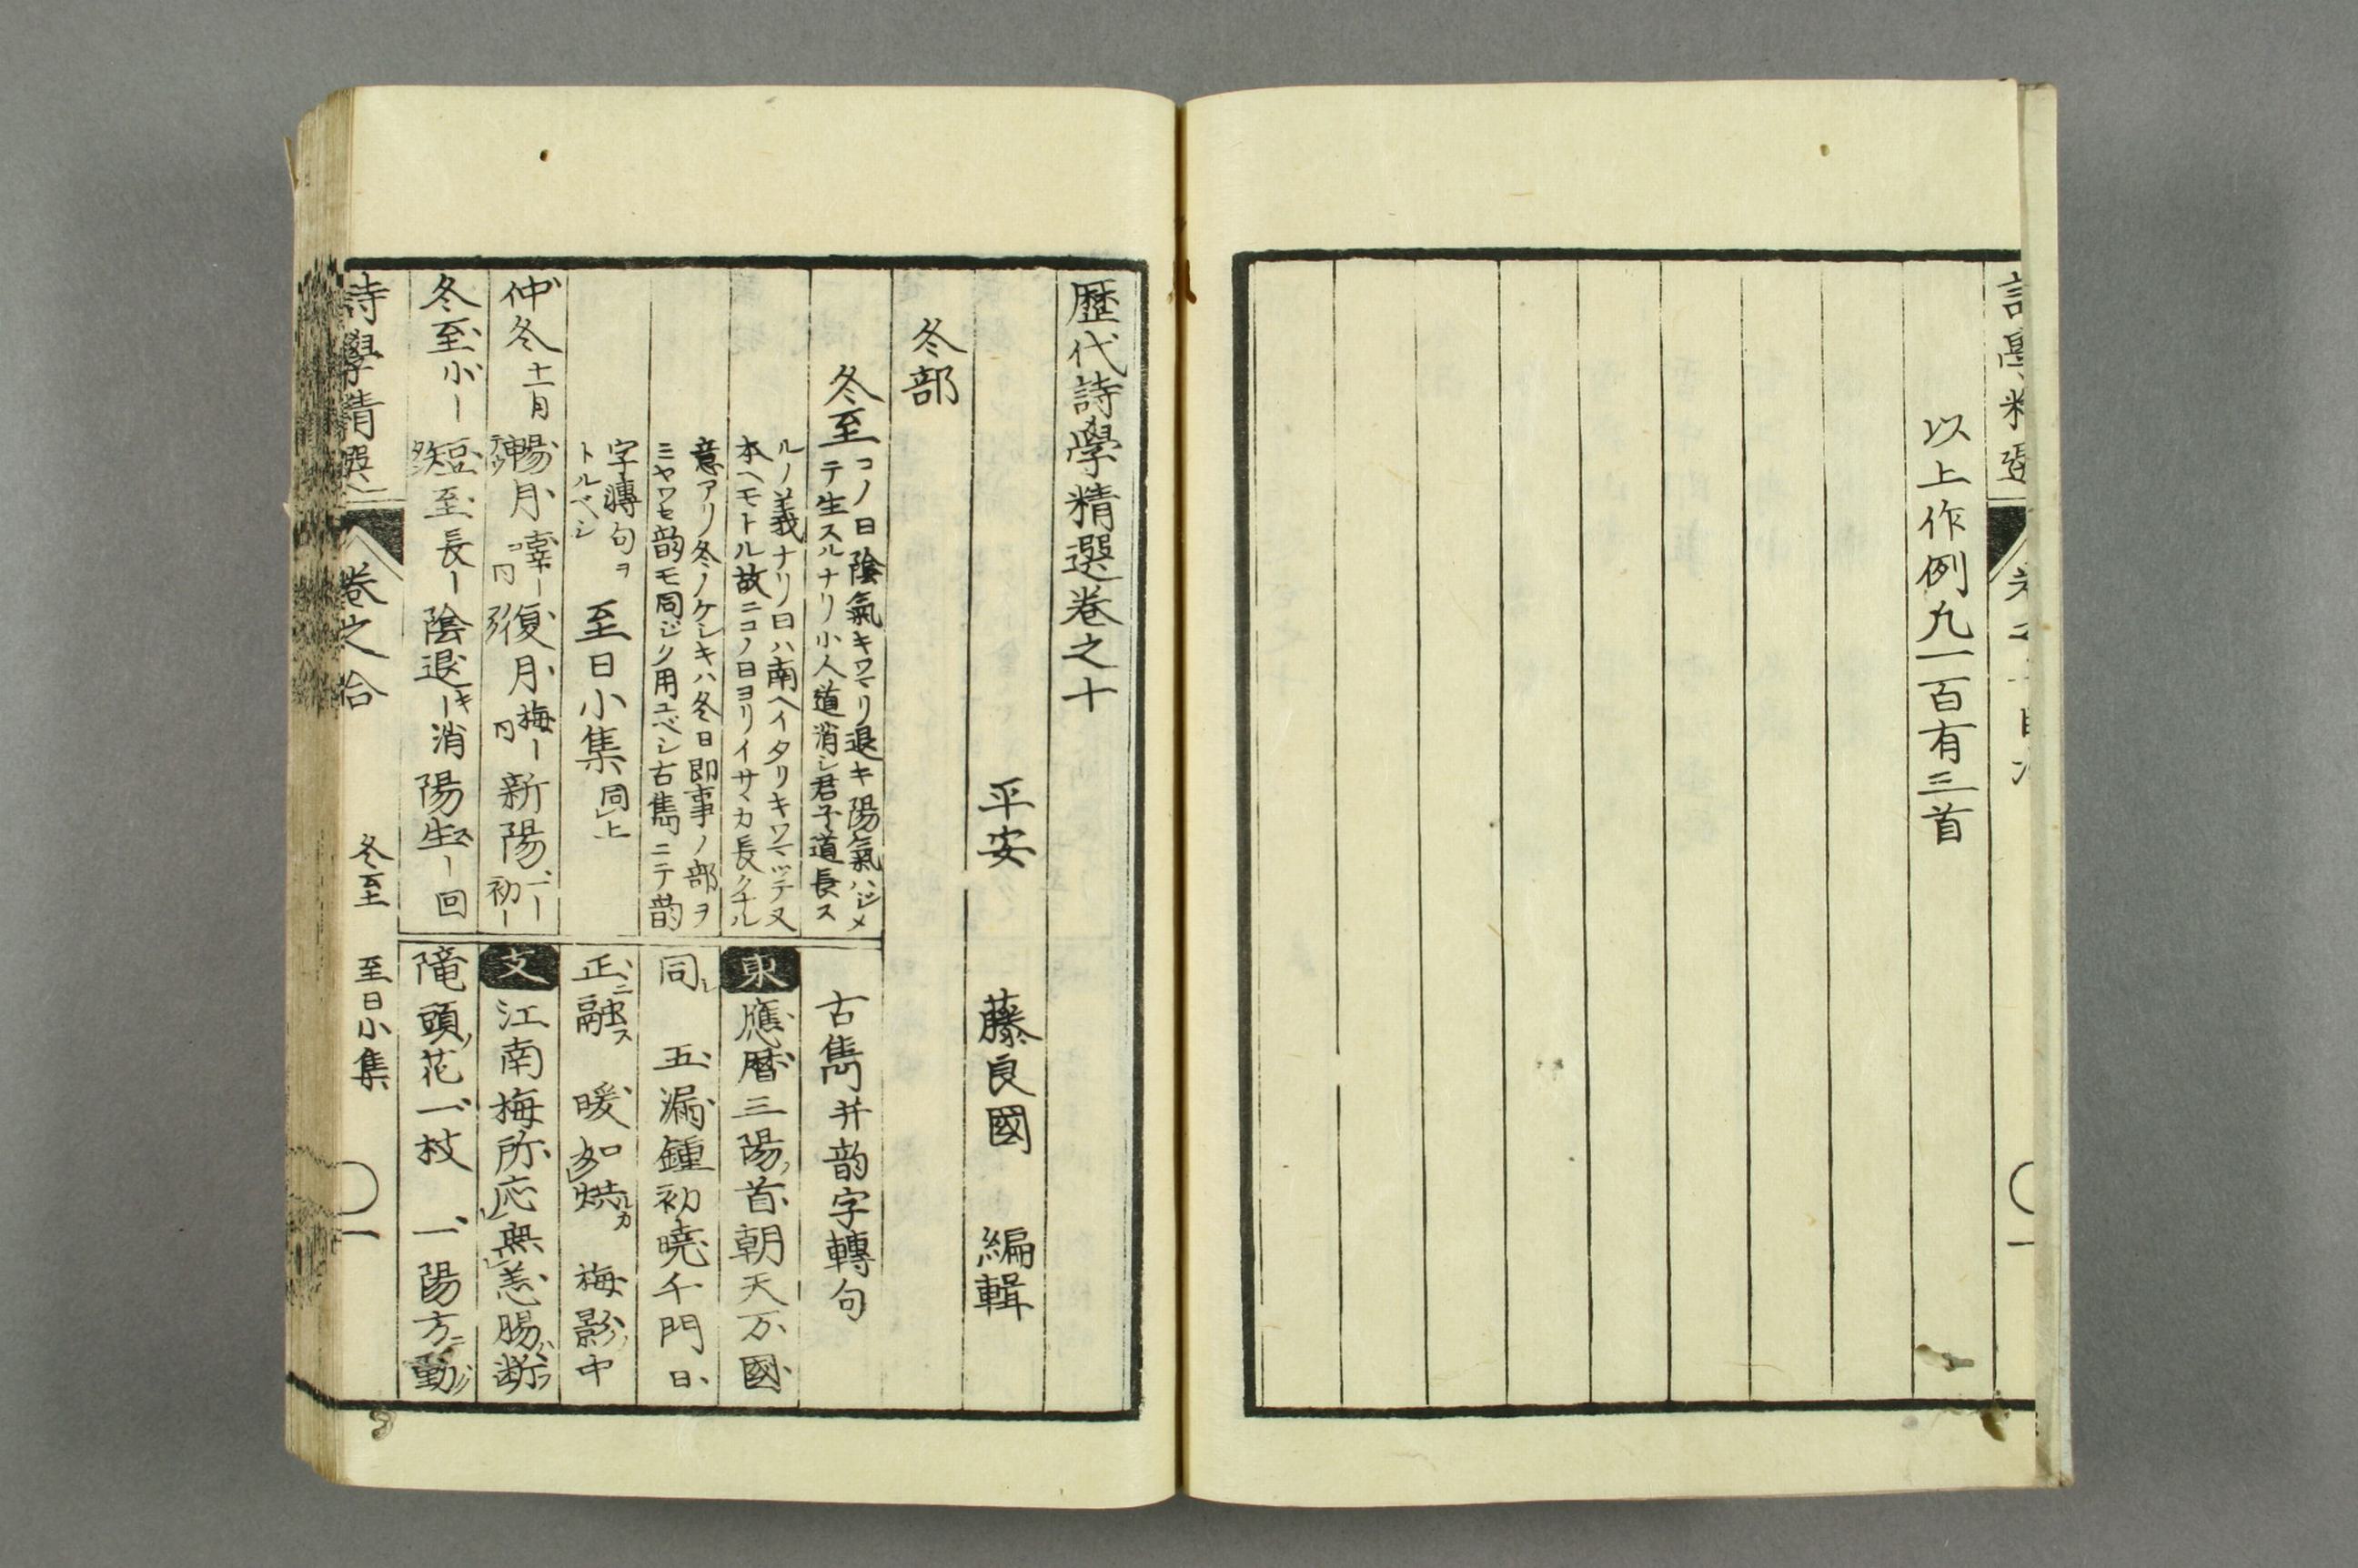 以上作例九一百有三首
歷代詩學精選卷之十
平安　藤良國　編輯
冬部
冬至
コノ日陰氣キワマリ退キ陽氣ハジメ
テ生スルナリ小人道消シ君子道長ス
ルノ義ナリ日ハ南ヘイタリキワマッテ又
本ヘモトル故ニコノ日ヨリイサヽカ長クナル
意アリ冬ノケシキハ冬日即事ノ部ヲ
ミヤワセ韵モ同ジク用ユベシ古雋ニテ韵
字轉句ヲ
トルベシ
至日小集同上
仲冬十一月 暢月 辜月 復月 梅月 新陽 初
冬至小 短至長 陰退キ消 陽生ス回
古雋并韵字轉句
東 應暦三陽首朝天万國
同 五漏鍾初曉千門日
正融ス 暖如焼 梅影中
支 江南梅所応無恙腸断
隴頭花一枝 一陽方動
詩學精選 卷之十 冬至 至日小集 一